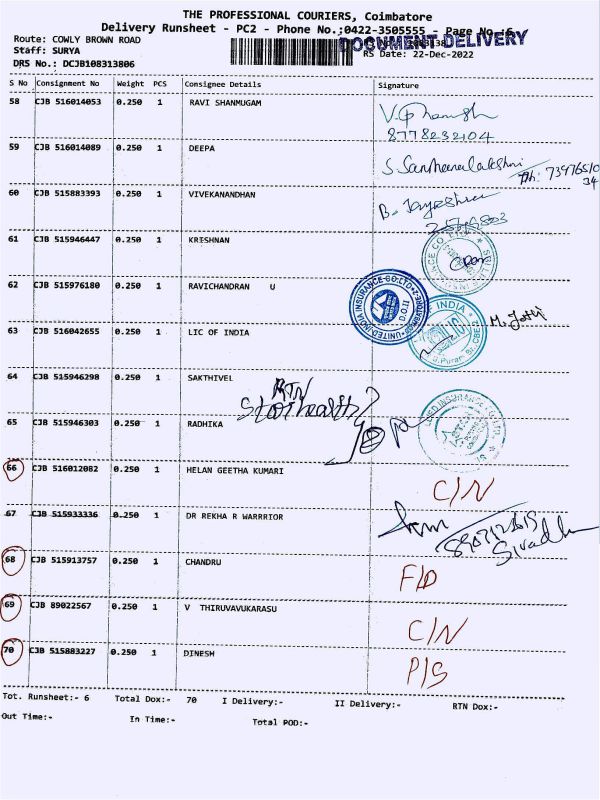 THE PROFESSIONAL COURIERS, Coimbatore
Delivery Runsheet - PC2 - Phone No.;0422-3505555 - Page No.:6
DOCUMENT DELIVERY
Route: COWLY BROWN ROAD
Staff: SURYA RS Date: 22-Dec-2022
DRS No.: DCJB108313806
S No Consignment No Weight PCS Consignee Details Signature
58 CJB 516014053 0.250 1 RAVI SHANMUGAM
8778232104
59 CJB 516014089 0.250 1 DEEPA
Ph: 7397651034
60 CJB 515883393 0.250 1 VIVEKANANDHAN
61 CJB 515946447 0.250 1 KRISHNAN
62 CJB 515976180 0.250 1 RAVICHANDRAN U
UNITED INDIA INSURANCE CO.LTD
63 CJB 516042655 0.250 1 LIC OF INDIA
INDIA
64 CJB 515946298 0.250 1 SAKTHIVEL
RTN
Star health
65 CJB 515946303 0.250 1 RADHIKA
66 CJB 516012082 0.250 1 HELAN GEETHA KUMARI C/N
67 CJB 515933336 0.250 1 DR REKHA R WARRRIOR
68 CJB 515913757 0.250 1 CHANDRU F/D
69 CJB 89022567 0.250 1 V THIRUVAVUKARASU C/N
70 CJB 515883227 0.250 1 DINESH P/S
Tot. Runsheet:- 6 Total Dox:- 70 I Delivery:- II Delivery:- RTN Dox:-
Out Time:- In Time:- Total POD:-